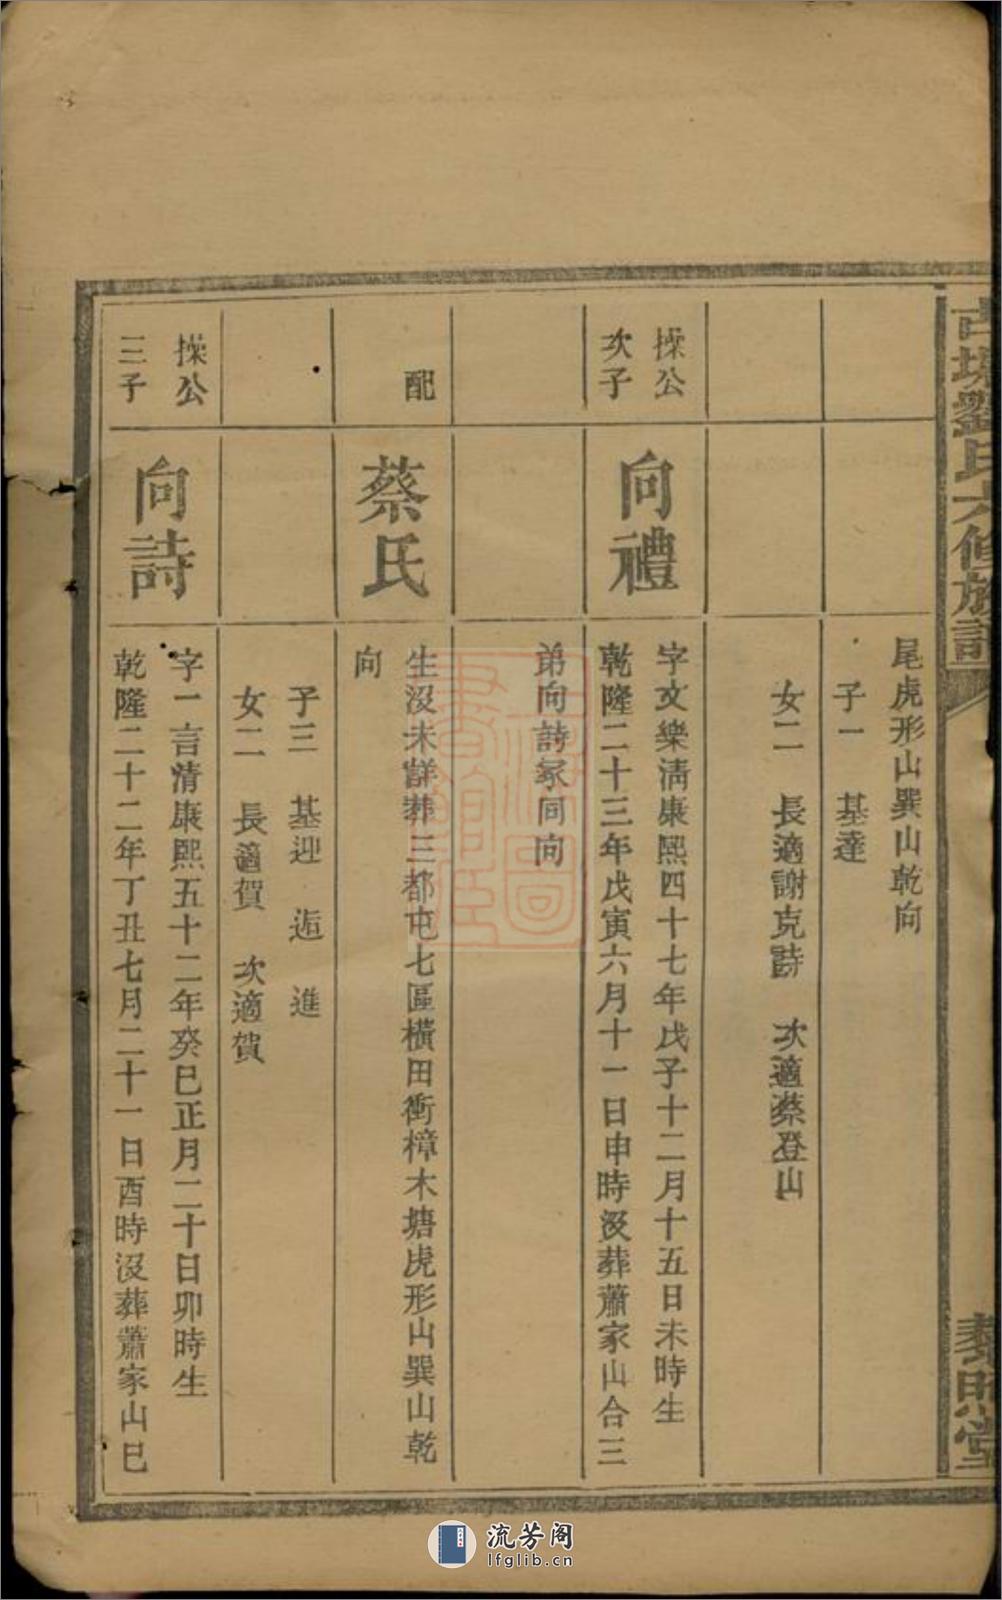 古塘劉氏六修族譜
藜照堂
尾虎形山巽山乾向
子一 基達
女二 長適謝克詩 次適蔡登山
操公
次子
向禮
字文樂清康熙四十七年戊子十二月十五日未時生
乾隆二十三年戊寅六月十一日申時沒葬蕭家山合三
弟向詩冢同向
配
蔡氏
生沒未詳葬三都屯七區橫田衝樟木塘虎形山巽山乾
向
子三 基迎 逅 進
女二 長適賀 次適賀
操公
三子
向詩
字一言清康熙五十二年癸巳正月二十日卯時生
乾隆二十二年丁丑七月二十一日酉時沒葬蕭家山巳
流芳阁
lfglib.cn